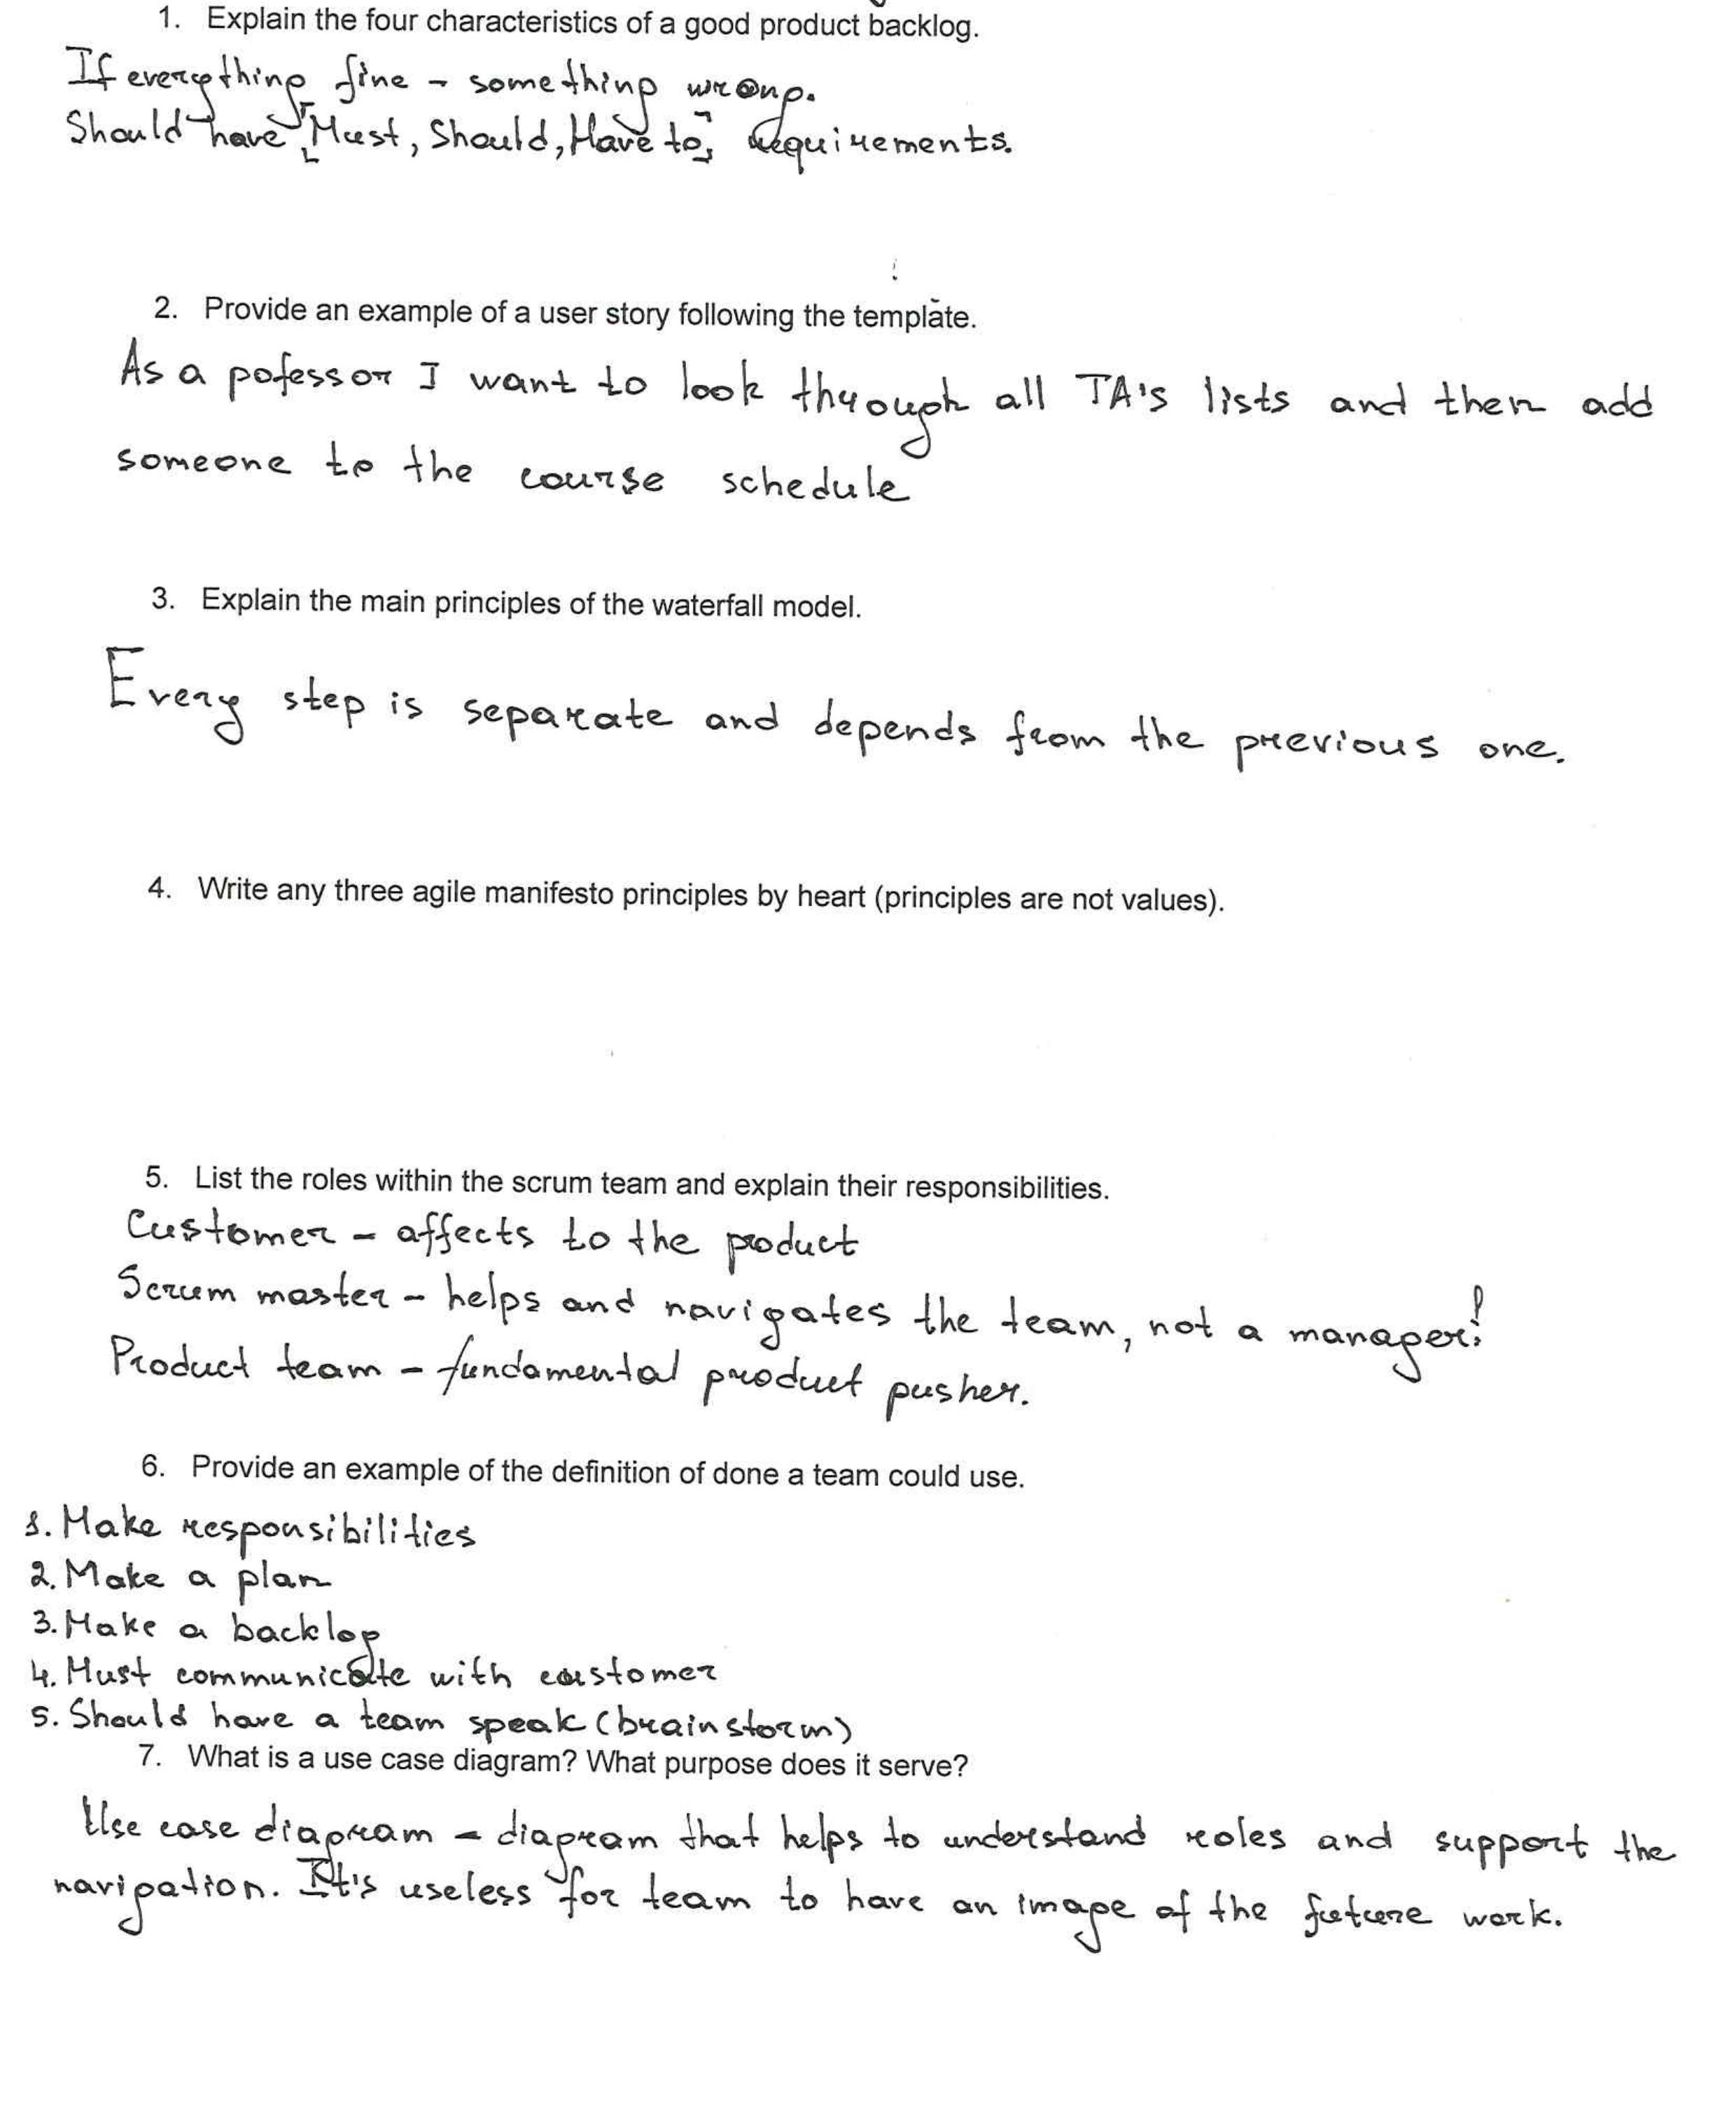 1. Explain the four characteristics of a good product backlog.
If everything fine - something wrong.
Should have "Must, Should, Have to" requirements.
2. Provide an example of a user story following the template.
As a pofessor I want to look through all TA's lists and then add
someone to the course schedule
3. Explain the main principles of the waterfall model.
Every step is separate and depends from the previous one.
4. Write any three agile manifesto principles by heart (principles are not values).
5. List the roles within the scrum team and explain their responsibilities.
Customer - affects to the product
Scrum master - helps and navigates the team, not a manager!
Product team - fundamental product pusher.
6. Provide an example of the definition of done a team could use.
1. Make responsibilities
2. Make a plan
3. Make a backlog
4. Must communicate with customer
5. Should have a team speak (brainstorm)
7. What is a use case diagram? What purpose does it serve?
Use case diagram - diagram that helps to understand roles and support the
navigation. It's useless for team to have an image of the future work.